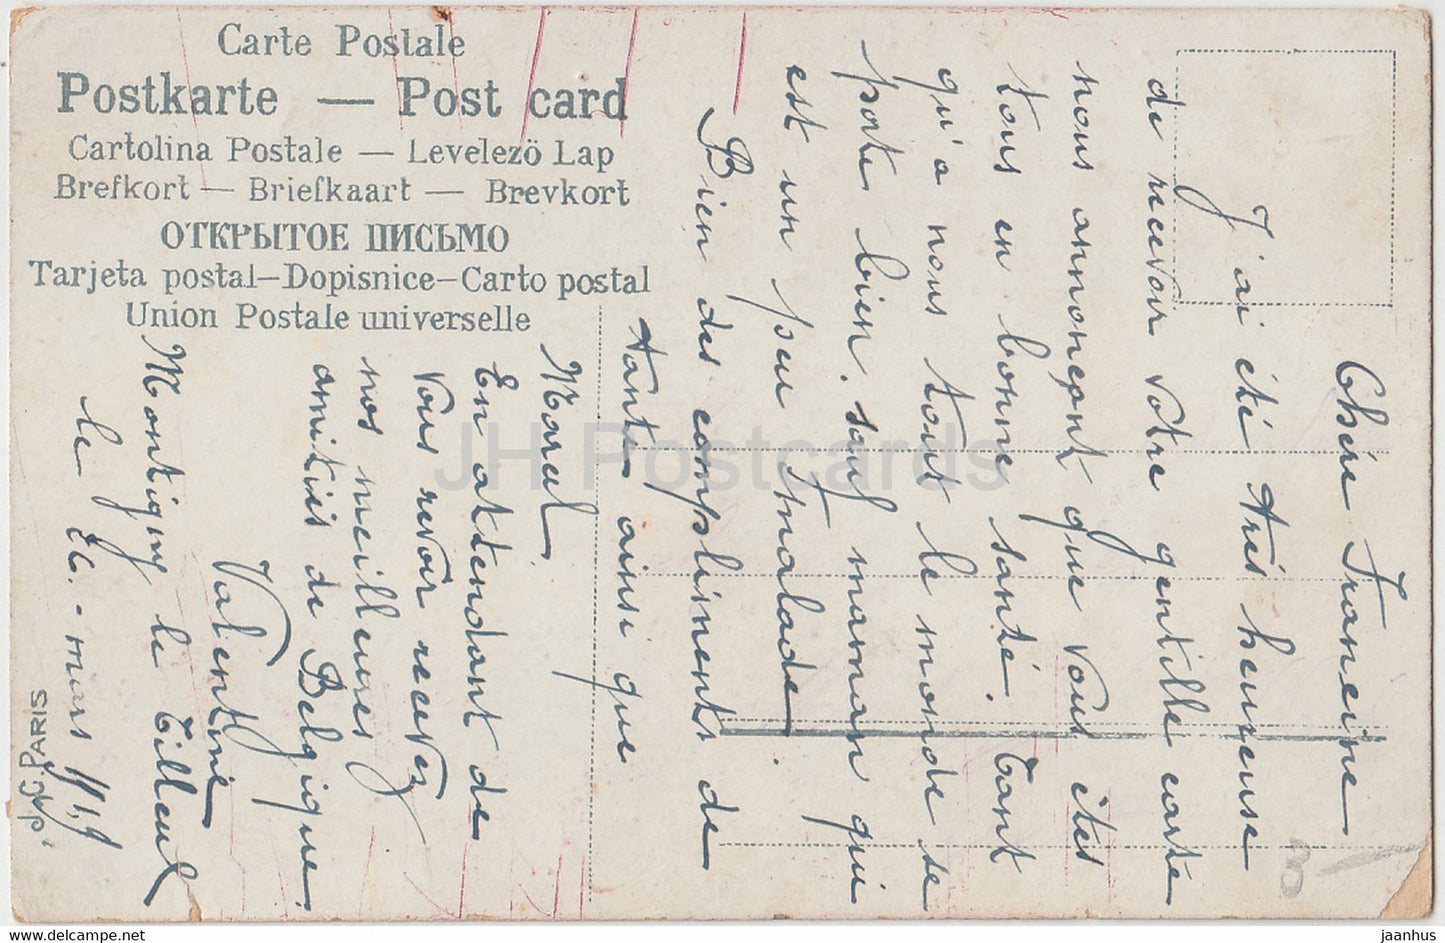 Carte Postale
Postkarte — Post card
Cartolina Postale — Levelezö Lap
Brefkort — Briefkaart — Brevkort
ОТКРЫТОЕ ПИСЬМО
Tarjeta postal—Dopisnice—Carto postal
Union Postale universelle
Chère Francine
J'ai été très heureuse
de recevoir votre gentille carte
nous annonçant que vous êtes
tous en bonne santé. Tant
qu'a nous tout le monde se
porte bien. sauf maman qui
est un peu malade.
Bien des compliments de
tant ainsi que
Marcel.
En attendant de
vous revoir recevez
nos meilleures
amitiés de Belgique.
Valentine
Montigny le Tilleul
le 26 - mars 1919
J.K. PARIS
3
JH Postcards
www.delcampe.net
jaanhus